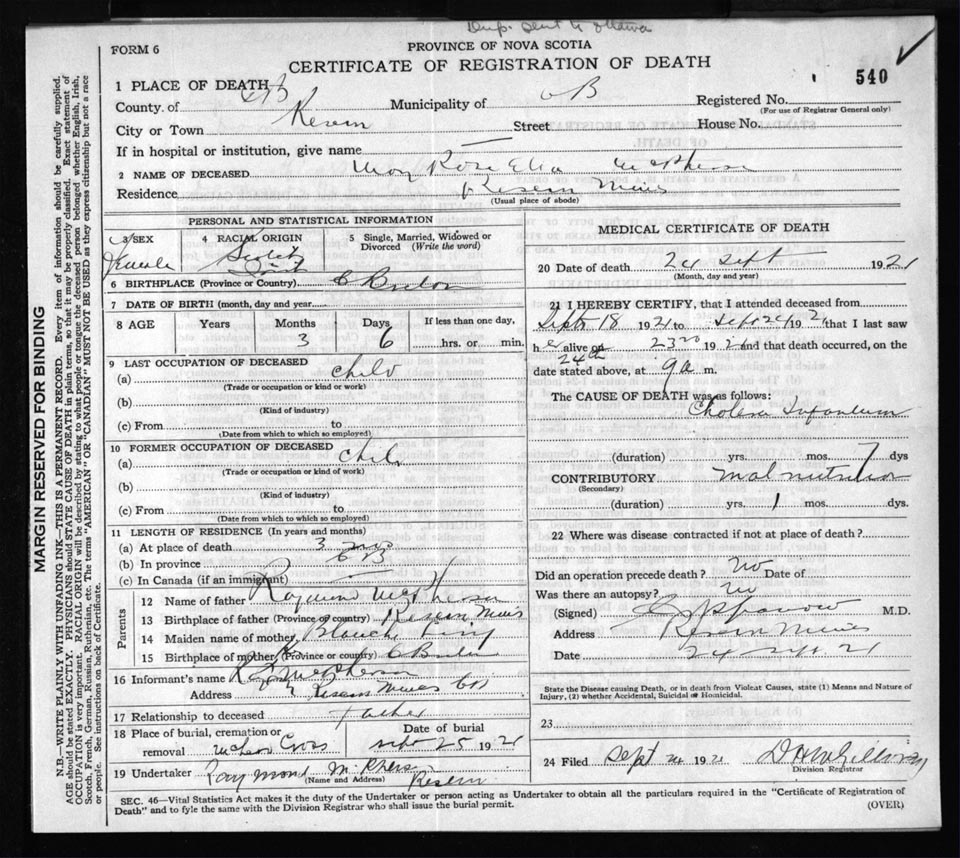 Dup. Sent to Ottawa
FORM 6
PROVINCE OF NOVA SCOTIA
CERTIFICATE OF REGISTRATION OF DEATH
540
1 PLACE OF DEATH
County of CB Municipality of CB Registered No.
(For use of Registrar General only)
City or Town Reserve Street House No.
If in hospital or institution, give name
2 NAME OF DECEASED Mary Rose Ella McPherson
Residence Reserve Mines
(Usual place of abode)
PERSONAL AND STATISTICAL INFORMATION
3 SEX Female
4 RACIAL ORIGIN Scotch
5 Single, Married, Widowed or Divorced (Write the word)
6 BIRTHPLACE (Province or Country) C Breton
7 DATE OF BIRTH (month, day and year)
8 AGE Years Months Days If less than one day,
3 6 hrs. or min.
9 LAST OCCUPATION OF DECEASED
(a) child
(Trade or occupation or kind of work)
(b)
(Kind of industry)
(c) From to
(Date from which to which so employed)
10 FORMER OCCUPATION OF DECEASED
(a) child
(Trade or occupation or kind of work)
(b)
(Kind of industry)
(c) From to
(Date from which to which so employed)
11 LENGTH OF RESIDENCE (In years and months)
(a) At place of death 3 mo
(b) In province CB
(c) In Canada (if an immigrant)
Parents
12 Name of father Raymond McPherson
13 Birthplace of father (Province or country) Reserve Mines
14 Maiden name of mother Blanche
15 Birthplace of mother (Province or country) C Breton
16 Informant's name R McPherson
Address Reserve Mines CB
17 Relationship to deceased Father
18 Place of burial, cremation or removal Cross
Date of burial Sept 25 1921
19 Undertaker Raymond McPherson
(Name and Address) Reserve
MEDICAL CERTIFICATE OF DEATH
20 Date of death 24 Sept 1921
(Month, day and year)
21 I HEREBY CERTIFY, that I attended deceased from
Sept 18 1921 to Sept 24 1921 that I last saw
her alive on 23rd 1921 and that death occurred, on the
24th
date stated above, at 9 a m.
The CAUSE OF DEATH was as follows:
Cholera Infantum
(duration) yrs. mos. 7 dys
CONTRIBUTORY Malnutrition
(Secondary)
(duration) yrs. 1 mos. dys.
22 Where was disease contracted if not at place of death?
Did an operation precede death? No Date of
Was there an autopsy? No
(Signed) M.D.
Address Reserve Mines
Date 24 Sept 21
State the Disease causing Death, or in death from Violent Causes, state (1) Means and Nature of Injury, (2) whether Accidental, Suicidal or Homicidal.
23
24 Filed Sept 24 1921
Division Registrar
SEC. 46—Vital Statistics Act makes it the duty of the Undertaker or person acting as Undertaker to obtain all the particulars required in the "Certificate of Registration of
Death" and to fyle the same with the Division Registrar who shall issue the burial permit. (OVER)
MARGIN RESERVED FOR BINDING
N.B.—WRITE PLAINLY WITH UNFADING INK—THIS IS A PERMANENT RECORD. Every item of information should be carefully supplied.
AGE should be stated EXACTLY. PHYSICIANS should STATE CAUSE OF DEATH in plain terms, so that it may be properly classified. Exact statement of
OCCUPATION is very important. RACIAL ORIGIN will be described by stating to what people or tongue the deceased person belonged whether English, Irish,
Scotch, French, German, Russian, Ruthenian, etc. The terms "AMERICAN" OR "CANADIAN" MUST NOT BE USED as they express citizenship but not a race
or people. See instructions on back of Certificate.